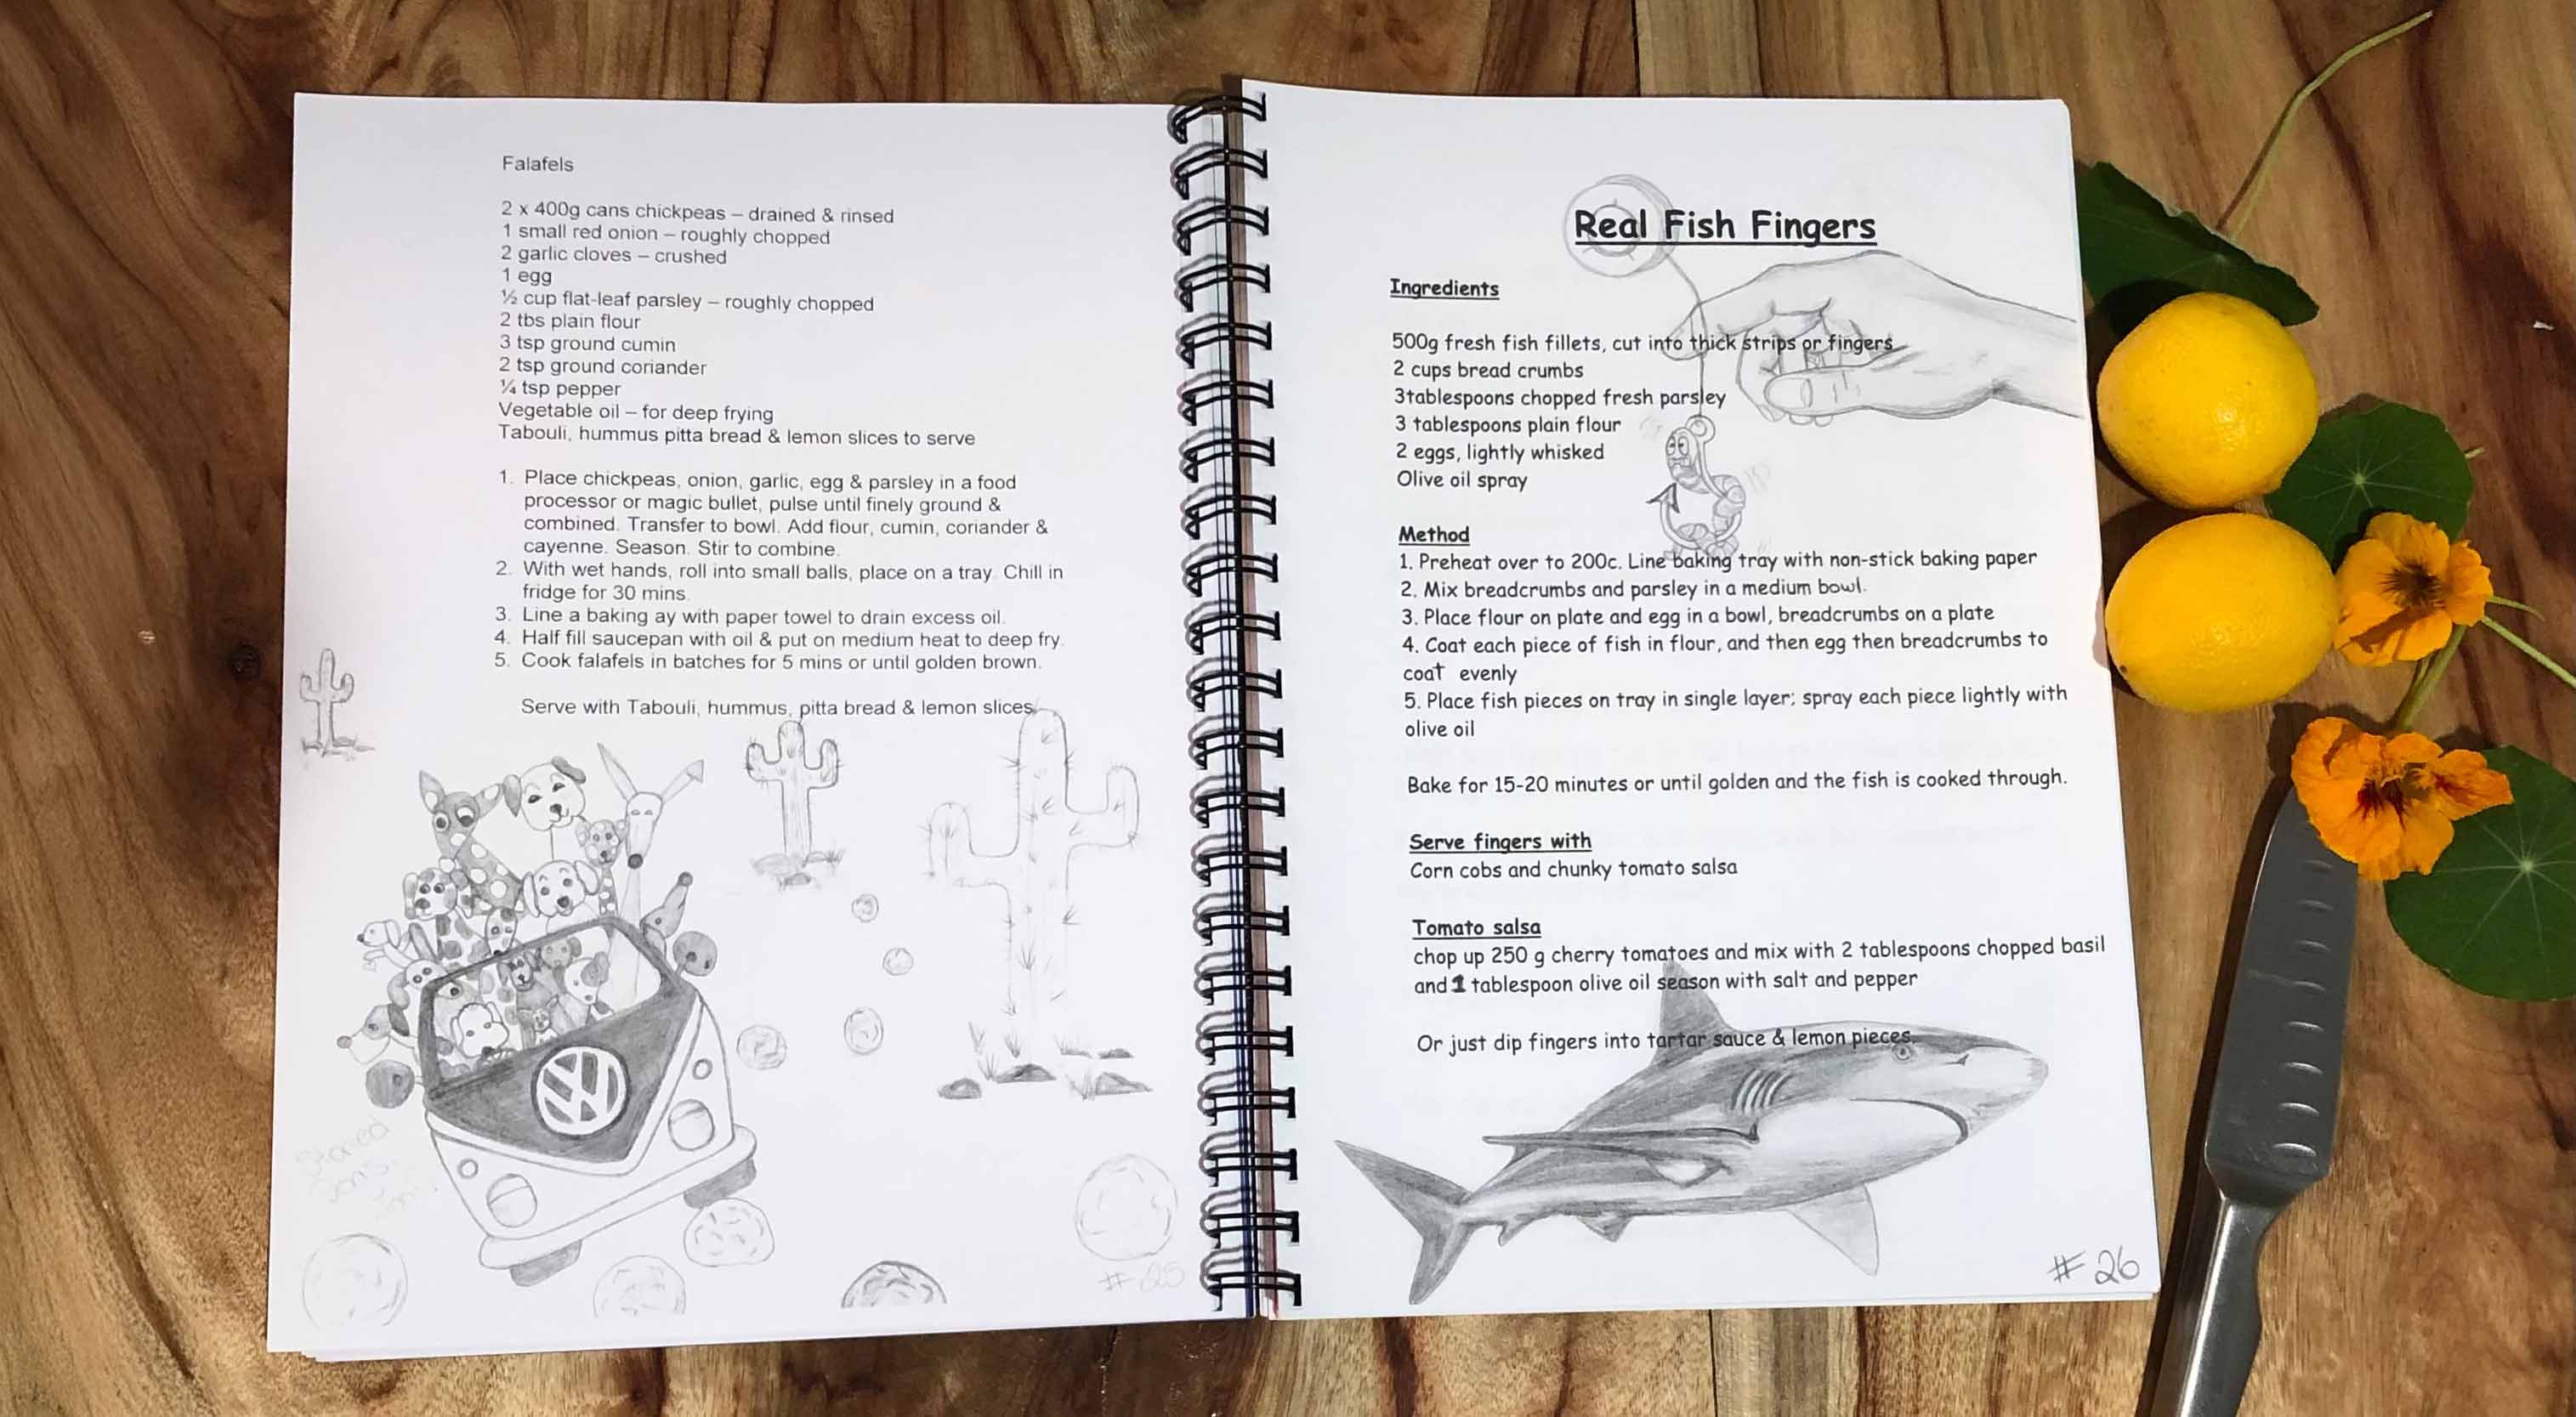 Falafels
2 x 400g cans chickpeas – drained & rinsed
1 small red onion – roughly chopped
2 garlic cloves – crushed
1 egg
½ cup flat-leaf parsley – roughly chopped
2 tbs plain flour
3 tsp ground cumin
2 tsp ground coriander
¼ tsp pepper
Vegetable oil – for deep frying
Tabouli, hummus pitta bread & lemon slices to serve
1. Place chickpeas, onion, garlic, egg & parsley in a food
processor or magic bullet, pulse until finely ground &
combined. Transfer to bowl. Add flour, cumin, coriander &
cayenne. Season. Stir to combine.
2. With wet hands, roll into small balls, place on a tray. Chill in
fridge for 30 mins.
3. Line a baking ay with paper towel to drain excess oil.
4. Half fill saucepan with oil & put on medium heat to deep fry.
5. Cook falafels in batches for 5 mins or until golden brown.
Serve with Tabouli, hummus, pitta bread & lemon slices
VW
#25
Real Fish Fingers
Ingredients
500g fresh fish fillets, cut into thick strips or fingers
2 cups bread crumbs
3tablespoons chopped fresh parsley
3 tablespoons plain flour
2 eggs, lightly whisked
Olive oil spray
Method
1. Preheat over to 200c. Line baking tray with non-stick baking paper
2. Mix breadcrumbs and parsley in a medium bowl.
3. Place flour on plate and egg in a bowl, breadcrumbs on a plate
4. Coat each piece of fish in flour, and then egg then breadcrumbs to
coat evenly
5. Place fish pieces on tray in single layer; spray each piece lightly with
olive oil
Bake for 15-20 minutes or until golden and the fish is cooked through.
Serve fingers with
Corn cobs and chunky tomato salsa
Tomato salsa
chop up 250 g cherry tomatoes and mix with 2 tablespoons chopped basil
and 1 tablespoon olive oil season with salt and pepper
Or just dip fingers into tartar sauce & lemon pieces
#26